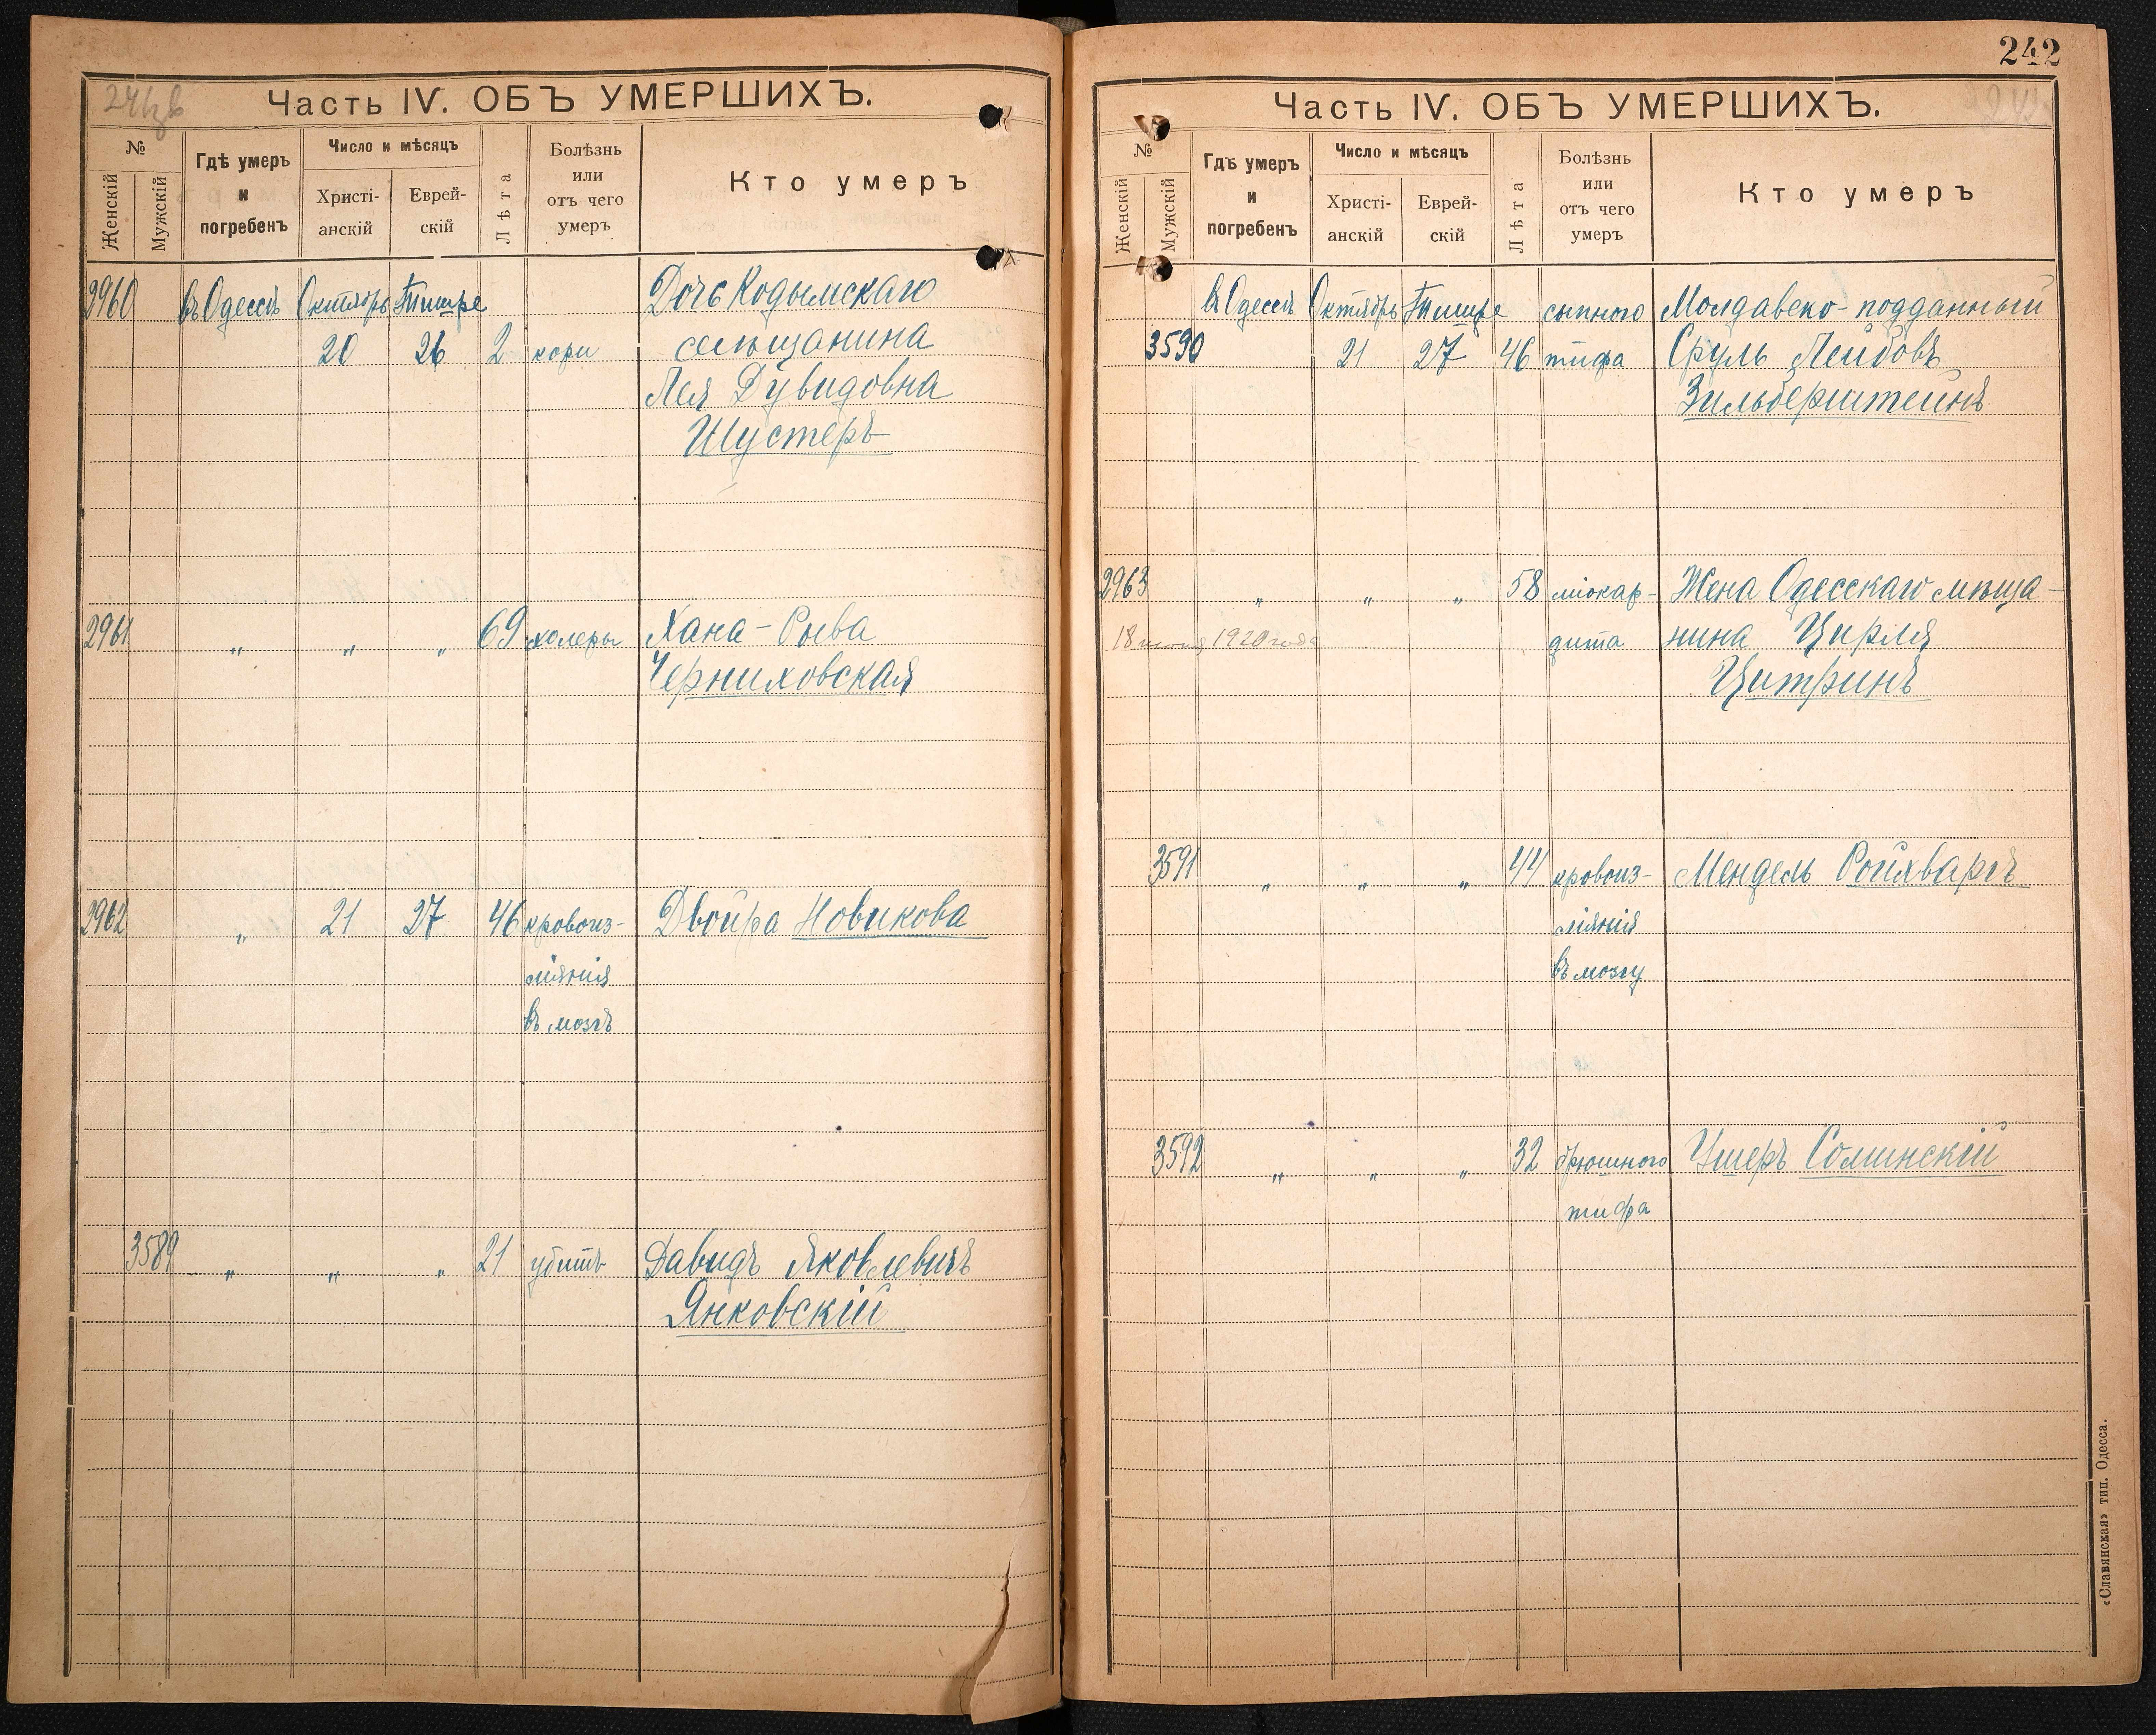 Часть IV. ОБЪ УМЕРШИХЪ.
№
Женскій
Мужскій
Гдѣ умеръ
и
погребенъ
Число и мѣсяцъ
Христі-
анскій
Еврей-
скій
Лѣта
Болѣзнь
или
отъ чего
умеръ
Кто умеръ
2960 въ Одессѣ Октябрь Тишре Дочь Кодымскаго
20 26 2 кори
Лея Дувидовна
Шустеръ
2961 " " " 69 холеры Хана-Рыва
Черниховская
2962 " 21 27 46 кровоиз- Двойра Новикова
ліянія
въ мозгъ
3589 " " " 21 убитъ Давидъ Яковлевичъ
Янковскій
242
Часть IV. ОБЪ УМЕРШИХЪ.
№
Женскій
Мужскій
Гдѣ умеръ
и
погребенъ
Число и мѣсяцъ
Христі-
анскій
Еврей-
скій
Лѣта
Болѣзнь
или
отъ чего
умеръ
Кто умеръ
въ Одессѣ Октябрь Тишре сыпного Молдавско-подданный
3590 21 27 46 тифа Сруль Лейбовъ
Зильберштейнъ
2963 " " " 58 міокар- Жена Одесскаго мѣща-
1920 года дита нина Цирля
Цитринъ
3591 " " " 44 кровоиз- Мендель Ройхваргъ
ліянія
въ мозгу
3592 " " " 32 брюшного Ушеръ Солинскій
тифа
«Славянская» тип. Одесса.